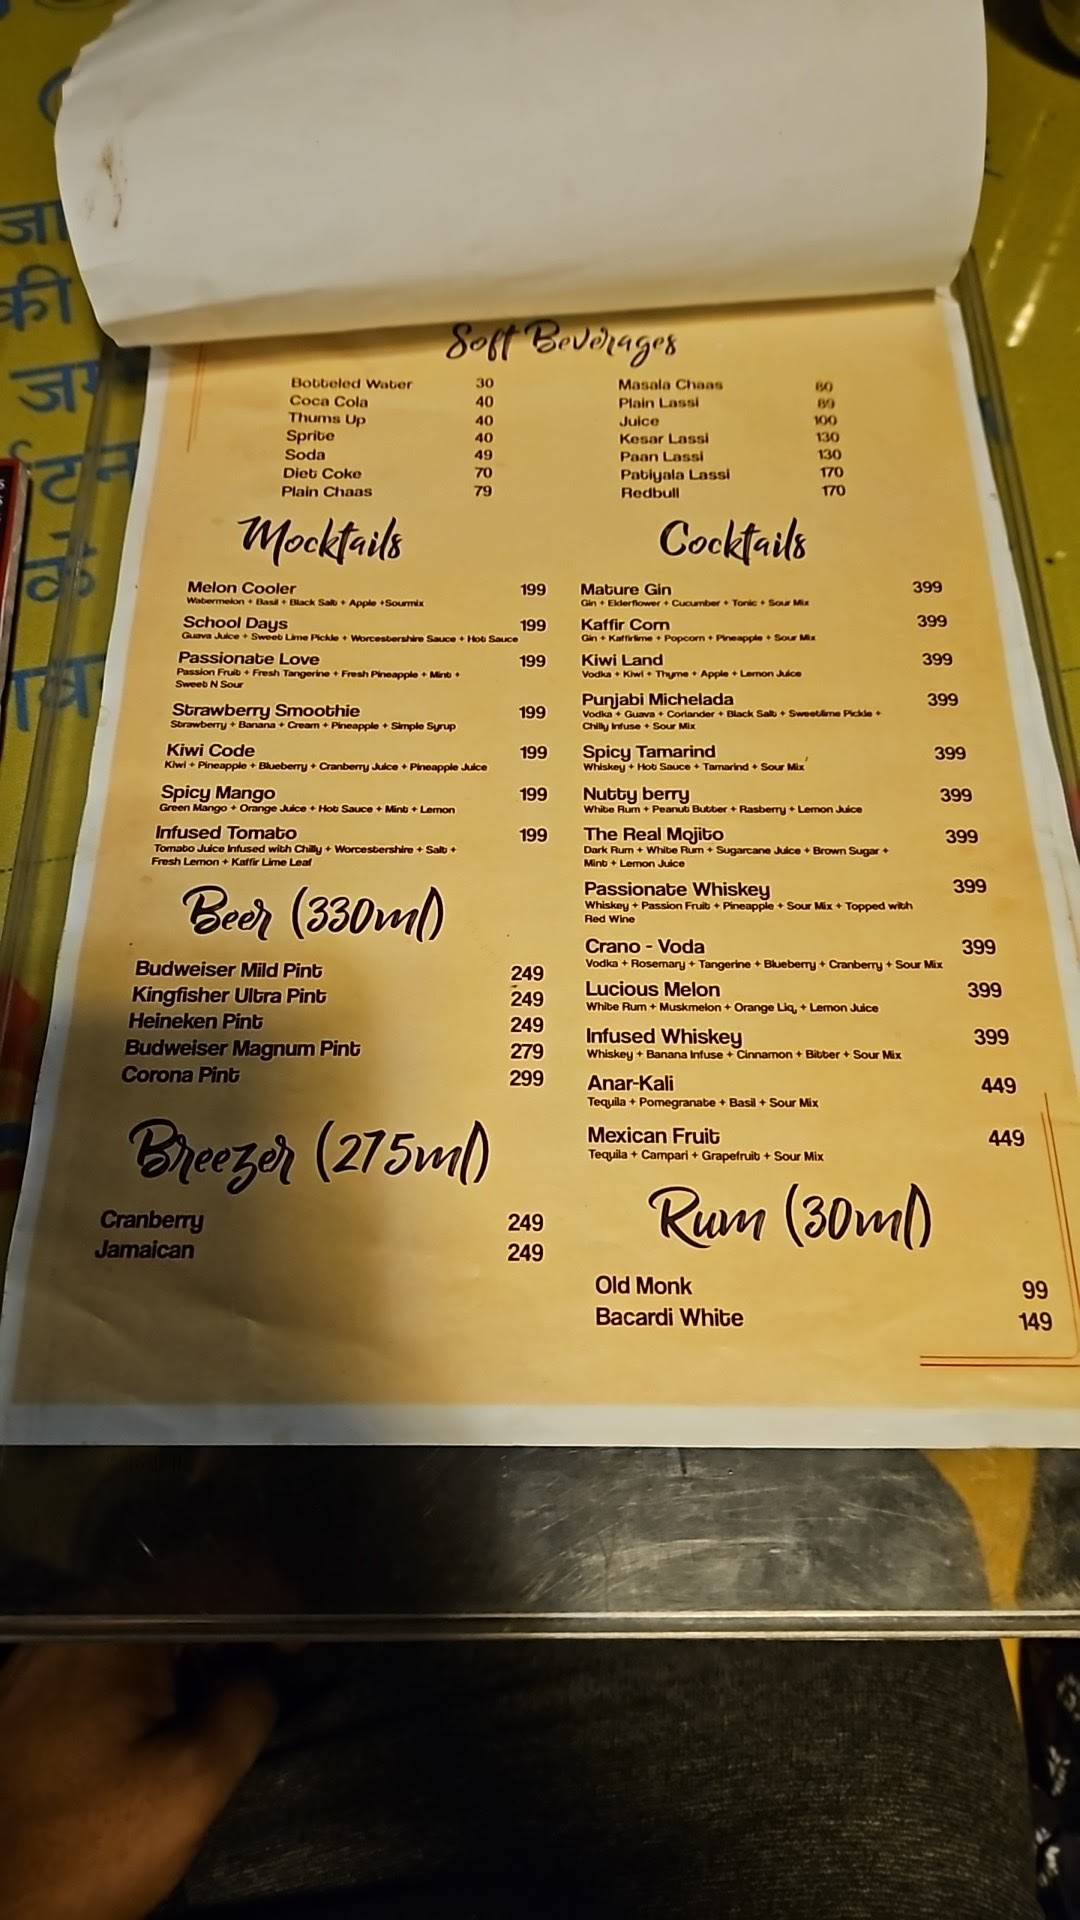 जा
की
र्टन
के
Soft Beverages
Botteled Water 30
Coca Cola 40
Thums Up 40
Sprite 40
Soda 49
Diet Coke 70
Plain Chaas 79
Masala Chaas 80
Plain Lassi 89
Juice 100
Kesar Lassi 130
Paan Lassi 130
Patiyala Lassi 170
Redbull 170
Mocktails
Melon Cooler 199
Watermelon + Basil + Black Salt + Apple +Sourmix
School Days 199
Guava Juice + Sweet Lime Pickle + Worcestershire Sauce + Hot Sauce
Passionate Love 199
Passion Fruit + Fresh Tangerine + Fresh Pineapple + Mint +
Sweet N Sour
Strawberry Smoothie 199
Strawberry + Banana + Cream + Pineapple + Simple Syrup
Kiwi Code 199
Kiwi + Pineapple + Blueberry + Cranberry Juice + Pineapple Juice
Spicy Mango 199
Green Mango + Orange Juice + Hot Sauce + Mint + Lemon
Infused Tomato 199
Tomato Juice Infused with Chilly + Worcestershire + Salt +
Fresh Lemon + Kaffir Lime Leaf
Beer (330ml)
Budweiser Mild Pint 249
Kingfisher Ultra Pint 249
Heineken Pint 249
Budweiser Magnum Pint 279
Corona Pint 299
Breezer (275ml)
Cranberry 249
Jamaican 249
Cocktails
Mature Gin 399
Gin + Elderflower + Cucumber + Tonic + Sour Mix
Kaffir Corn 399
Gin + Kaffirlime + Popcorn + Pineapple + Sour Mix
Kiwi Land 399
Vodka + Kiwi + Thyme + Apple + Lemon Juice
Punjabi Michelada 399
Vodka + Guava + Coriander + Black Salt + Sweetlime Pickle +
Chilly Infuse + Sour Mix
Spicy Tamarind 399
Whiskey + Hot Sauce + Tamarind + Sour Mix
Nutty berry 399
White Rum + Peanut Butter + Rasberry + Lemon Juice
The Real Mojito 399
Dark Rum + White Rum + Sugarcane Juice + Brown Sugar +
Mint + Lemon Juice
Passionate Whiskey 399
Whiskey + Passion Fruit + Pineapple + Sour Mix + Topped with
Red Wine
Crano - Voda 399
Vodka + Rosemary + Tangerine + Blueberry + Cranberry + Sour Mix
Lucious Melon 399
White Rum + Muskmelon + Orange Liq, + Lemon Juice
Infused Whiskey 399
Whiskey + Banana Infuse + Cinnamon + Bitter + Sour Mix
Anar-Kali 449
Tequila + Pomegranate + Basil + Sour Mix
Mexican Fruit 449
Tequila + Campari + Grapefruit + Sour Mix
Rum (30ml)
Old Monk 99
Bacardi White 149